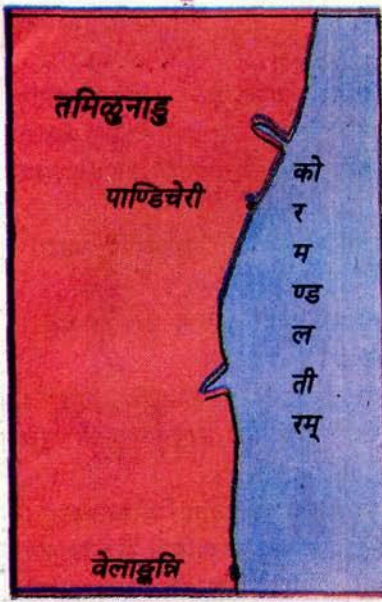 तमिळुनाडु
पाण्डिचेरी
को
र
म
ण्ड
ल
ती
रम्
वेलाङ्कन्नि